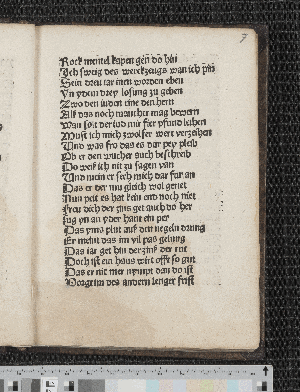 7
Rock mentel kapen gen do hin
Ich sweig des werckzeugs wan ich pin
Sein drei tar nen worden eben
Yn ydem drey losung zu geben
Zwo den iuden eine den hern
Als das noch mancher mag bewern
Wan solt der iud mir fier pfund leihen
Must ich mich zwolfer wert verzeihen
Und was fro das es dar pey pleib
Ob er den wucher auch beschreib
Do weis ich nit zu sagen van
Und mein er sech mich dar fur an
Das er der mu gleich wol genet
Nun peit es hat kein end noch niet
Freu dich der zins get auch do her
Zug yn an yder hant ein per
Das yms plut aus den negeln drang
Er meint das im vil pas gelung
Das iar get hin der zinß der eut
Doch ist ein haus wirt offt so gut
Das er nit mer nympt dan do ist
Vergeim des andern lenger frist